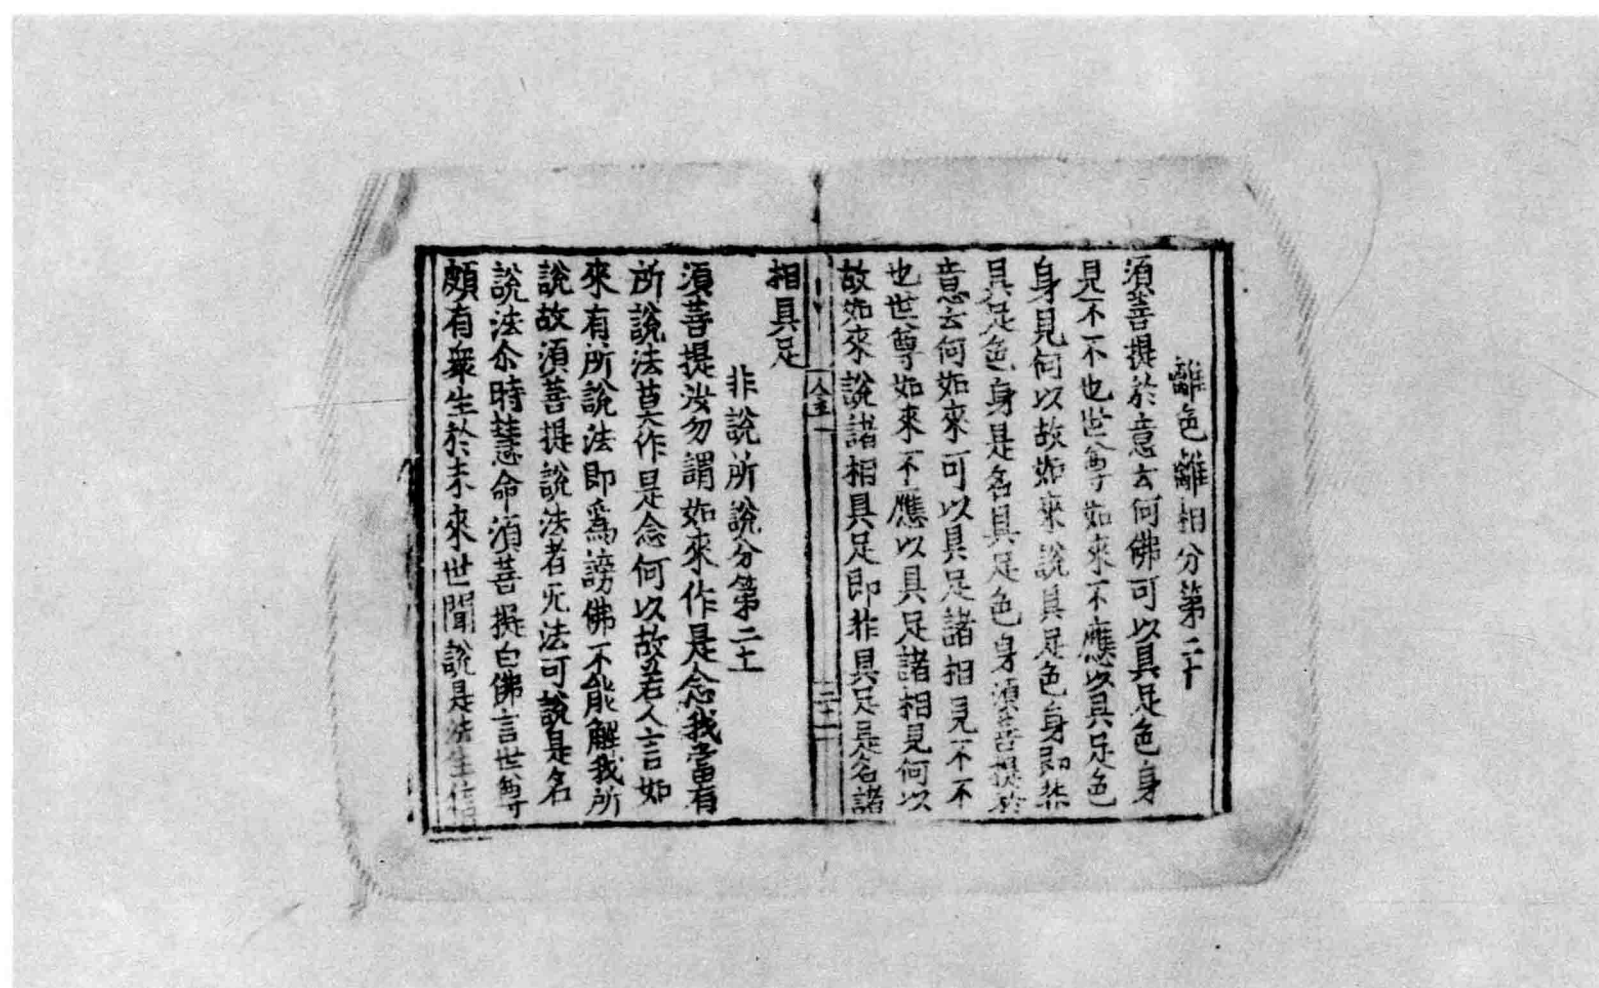 離色離相分第二十
須菩提於意云何佛可以具足色身
見不不也世尊如來不應以具足色
身見何以故如來說具足色身即非
具足色身是名具足色身須菩提於
意云何如來可以具足諸相見不不
也世尊如來不應以具足諸相見何以
故如來說諸相具足即非具足是名諸
金
二十一
相具足
非說所說分第二十一
須菩提汝勿謂如來作是念我當有
所說法莫作是念何以故若人言如
來有所說法即爲謗佛不能解我所
說故須菩提說法者无法可說是名
說法尒時慧命須菩提白佛言世尊
頗有衆生於未來世聞說是法生信